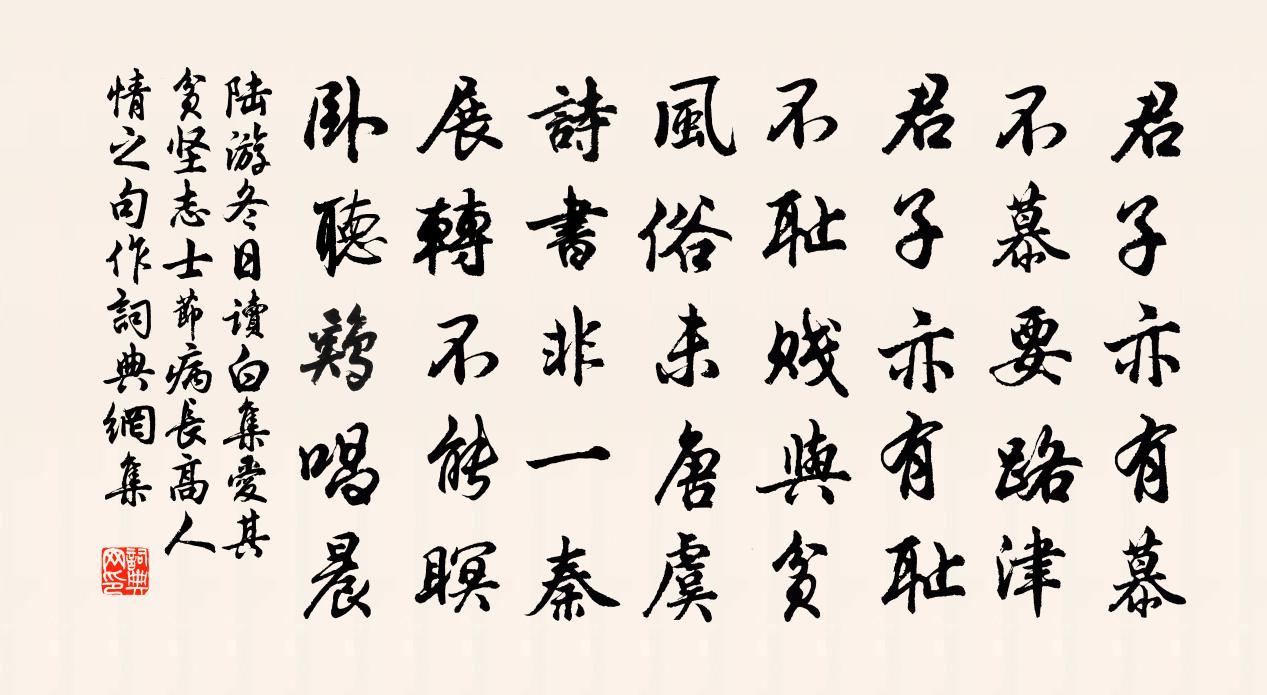 君子亦有慕
不慕要路津
君子亦有耻
不耻賤與貧
風俗未唐虞
詩書非一秦
展轉不能瞑
卧聽鷄唱晨
陸游冬日讀白集愛其
貧坚志士節病長高人
情之句作詞典網集
詞典
网印